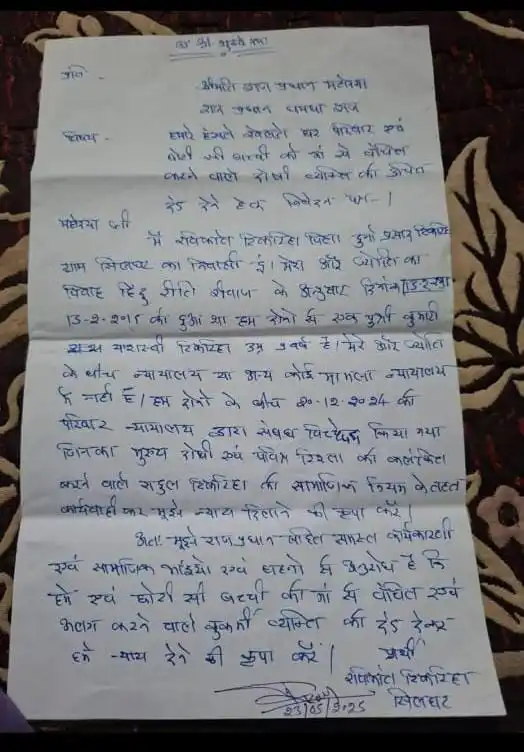 प्रति -
श्रीमति राज प्रधान महोदया
राज प्रधान धमधा राज
विषय - हमारे हंसते खेलते घर परिवार एवं
छोटी सी बच्ची को मां से वंचित
करने वाले दोषी व्यक्ति को उचित
दंड देने हेतु निवेदन पत्र - ।
महोदया जी
मैं रविकांत टिकरिहा पिता दुर्गा प्रसाद टिकरिहा
ग्राम सिलघट का निवासी हूं। मेरा और ज्योति का
विवाह हिंदु रीति रीवाज के अनुसार दिनांक
13-2-2015 को हुआ था हम दोनो से एक पुत्री कुमारी
यशस्वी टिकरिहा उम्र वर्ष है। मेरे और ज्योति
के बीच न्यायालय या अन्य कोई मामला न्यायालय
में नही है। हम दोनो के बीच 20.12.2024 को
परिवार न्यायालय द्वारा संबंध विच्छेदन किया गया
जिनका मुख्य दोषी एवं पवित्र रिश्ता को कलंकित
करने वाले राहुल टिकरिहा को सामाजिक नियम के तहत
कार्यवाही कर मुझे न्याय दिलाने की कृपा करें।
अतः मुझे राजप्रधान सहित समस्त कार्यकारणी
एवं सामाजिक भाईयो एवं बहनो से अनुरोध है कि
हमे एवं छोटी सी बच्ची को मां से वंचित एवं
अलग करने वाले कुकर्मी व्यक्ति को दंड देकर
हमे न्याय देने की कृपा करें। प्रार्थी
रविकांत टिकरिहा
सिलघट
23/05/2025